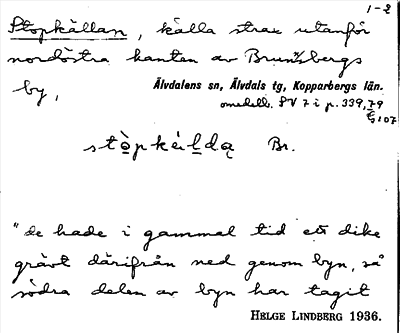 1-2
Stopkällan, källa strax utanför
nordöstra kanten av Brunnsbergs
by,
Älvdalens sn, Älvdals tg, Kopparbergs län.
omedelb. SV 7 i p. 339,79
107
stòpkèilda Br.
"de hade i gammal tid ett dike
grävt därifrån ned genom byn, så
södra delen av byn har tagit
HELGE LINDBERG 1936.